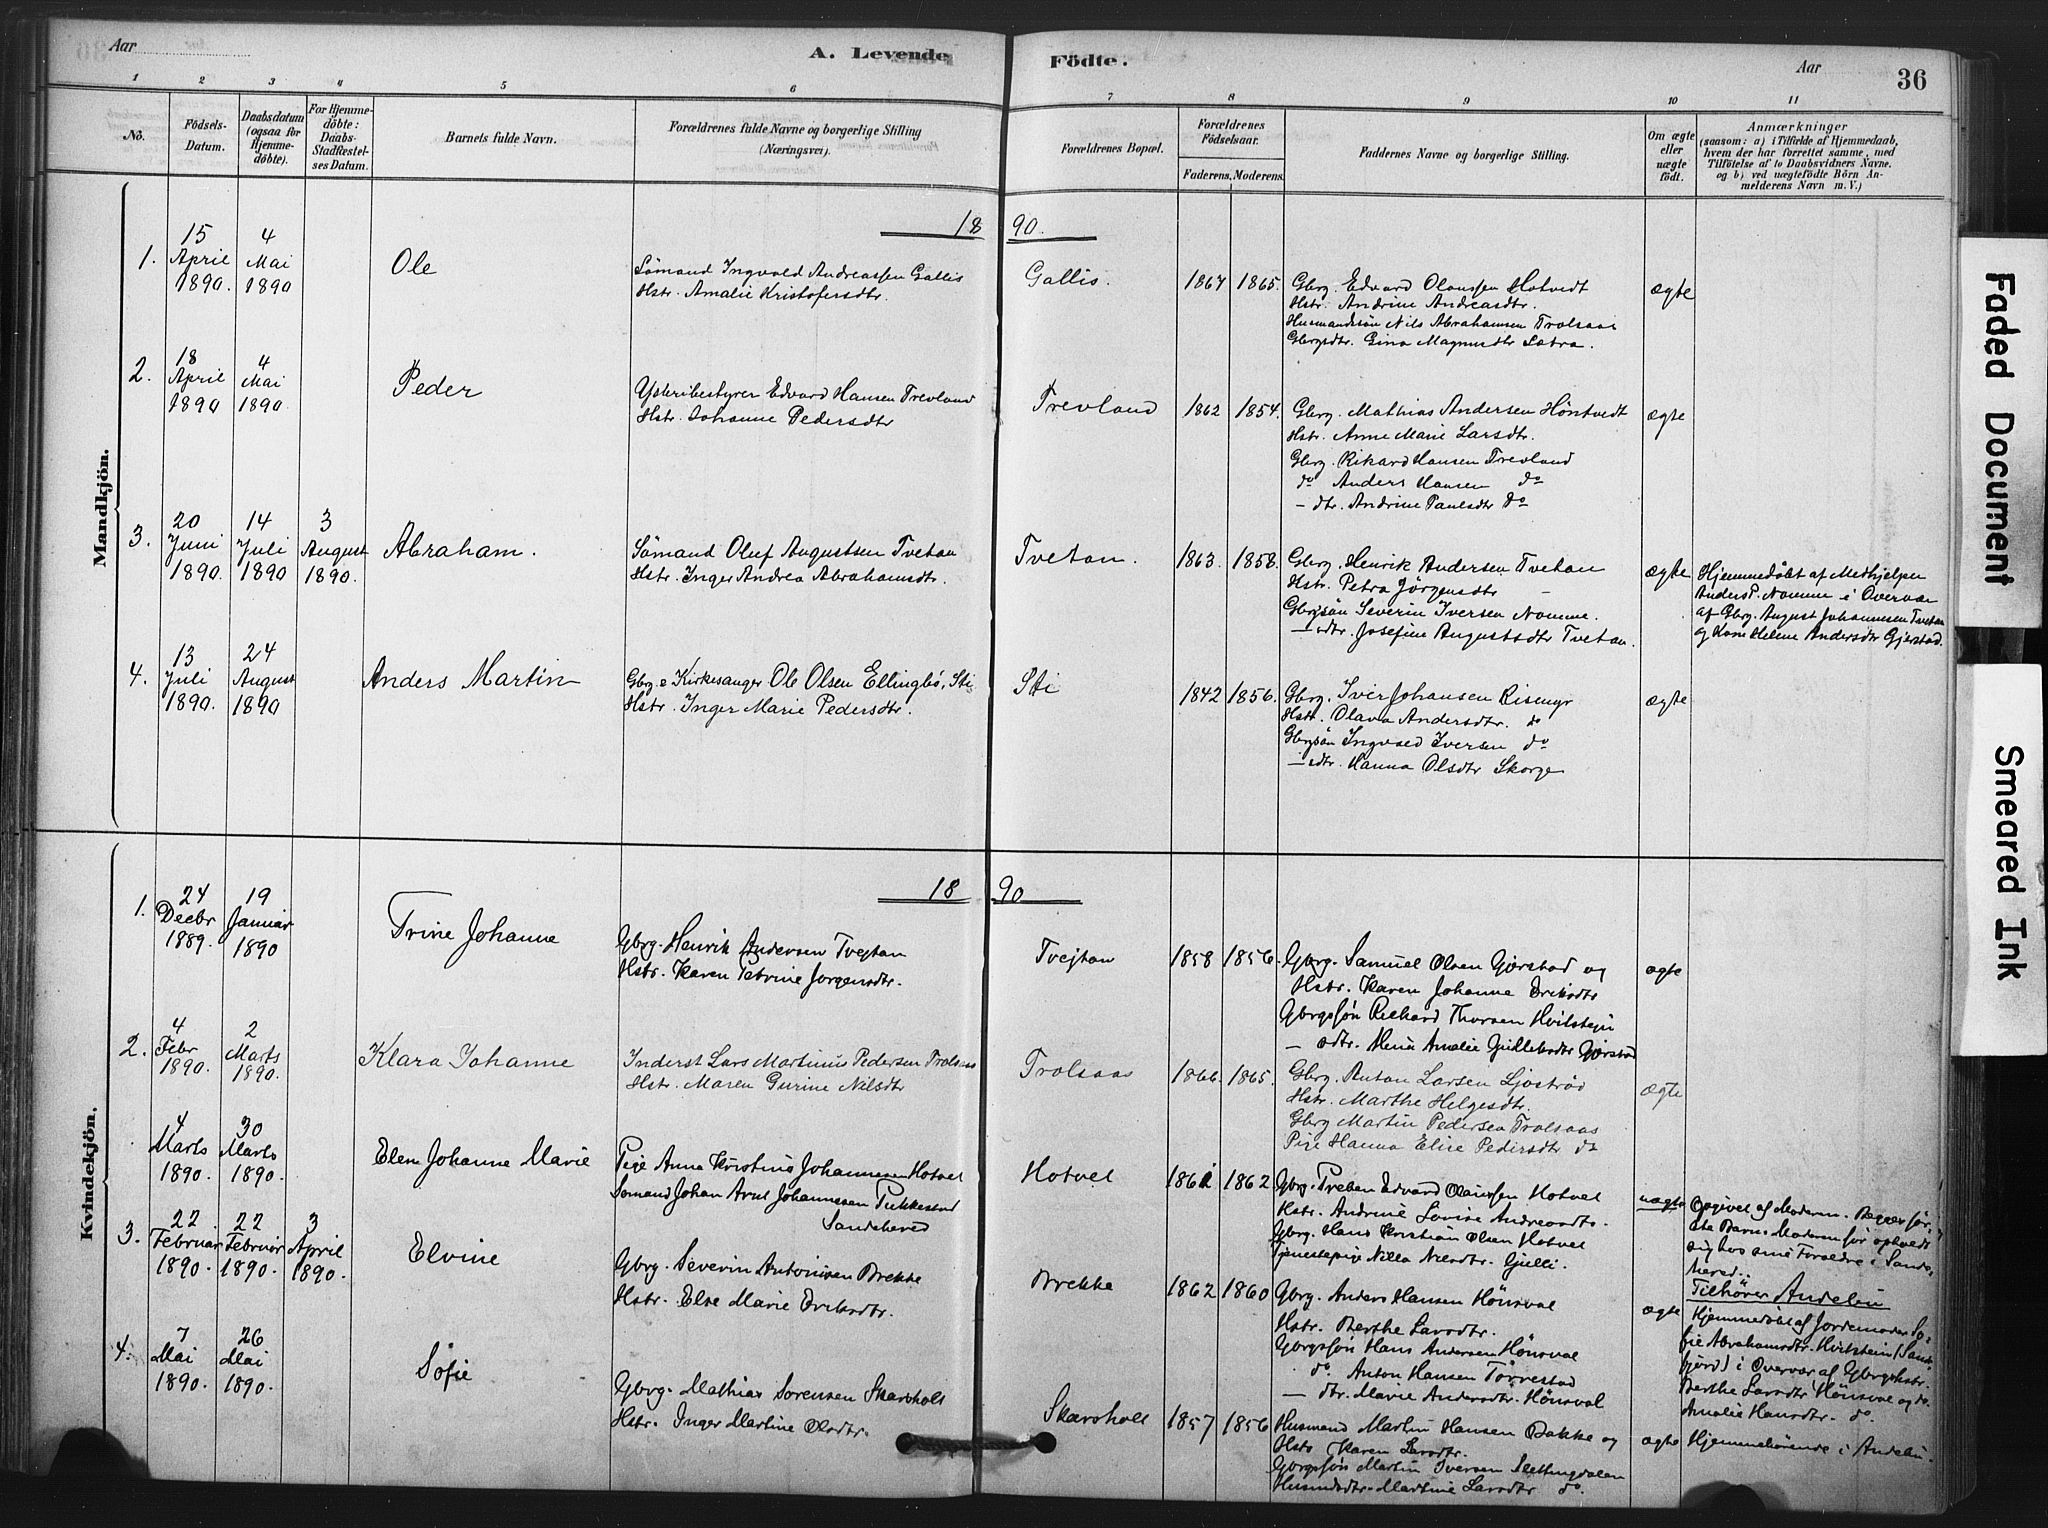 Aar
A. Levende
Födte.
Aar
36
1 2 3 4 5 6 7 8 9 10 11
No.
Födsels-Datum.
Daabsdatum (ogsaa for Hjemmedöbte).
For Hjemmedöbte: Daabs-Stadfæstelses Datum.
Barnets fulde Navn.
Forældrenes fulde Navne og borgerlige Stilling (Næringsvei).
Forældrenes Bopæl.
Forældrenes Födselsaar.
Faderens. Moderens.
Faddernes Navne og borgerlige Stilling.
Om ægte eller uægte födt.
Anmærkninger
(saasom: a) i Tilfælde af Hjemmedaab, hvem der har forrettet samme, med Tilföielse af to Daabsvidners Navne. og b) ved uægtefödte Börn Anmelderens Navn m. V.)
Mandkjön.
1890.
1.
15 April 1890.
4 Mai 1890
Ole
Sömand Ingvald Andreassen Gallis
Hstr. Amalie Kristofersdtr.
Gallis.
1867 1865.
Gbrg. Edvard Olaussen Hotvedt
Hstr. Andrine Andreasdtr.
Husmandssön Nils Abrahamsen Trolsaas
Gbrgsdtr. Gina Magnusdtr
ægte
2.
18 April 1890
4 Mai 1890.
Peder
Ysteribestyrer Edvard Hansen Trevland
Hstr. Johanne Pedersdtr
Trevland
1862 1854.
Gbrg. Mathias Andersen Höntvedt
Hstr. Anne Marie Larsdtr.
Gbrg. Rikard Hansen Trevland
do Anders Hansen do
- dtr. Andrine Paulsdtr do
ægte
3.
20 Juni 1890.
14 Juli 1890
3 August 1890.
Abraham.
Sömand Oluf Augustsen Tvetan
Hstr. Inger Andrea Abrahamsdtr.
Tvetan.
1863. 1858.
Gbrg. Henrik Andersen Tvetan
Hstr. Petra Jörgensdtr -
Gbrgsön Severin Iversen Nomme.
- sdtr. Josefine Augustsdtr Tvetan.
ægte
Hjemmedöbt af Medhjelper
Anders P. Nomme i Overvær
af Gbrg. August Johannesen Tvetan
og Kone Helene Andersdtr Gjerstad.
4.
13 Juli 1890.
24 August 1890
Anders Martin
Gbrg. e Kirkesanger Ole Olsen Ellingbö, Sti
Hstr. Inger Marie Pedersdtr.
Sti
1842 1856.
Gbrg. Iver Johansen Risemyr
Hstr. Olava Andersdtr. do
Gbrgsön Ingvald Iversen do
- sdtr. Hanna Olsdtr Skorge
ægte
Kvindekjön.
1890
1.
24 Decbr 1889.
19 Januar 1890
Trine Johanne
Gbrg. Henrik Andersen Tvejtan
Hstr. Karen Petrine Jorgensdtr.
Tvejtan
1858 1856.
Gbrg. Samuel Olsen Gjerstad og
Hstr. Karen Johanne Eriksdtr
Gbrgssön Richard Thorsen Hvitstejn
ægte
2.
4 Febr 1890.
2 Marts 1890.
Klara Johanne
Inderst Lars Martinius Pedersen Trolsaas
Hstr. Maren Gurine Nilsdtr
Trolsaas
1866. 1865.
Gbrg. Anton Larsen
Hstr. Marthe Helgesdtr.
Gbrg Martin Pedersen Trolsaas
Pige Hanna Elise Pedersdtr do
ægte
4 Marts 1890.
30 Marts 1890.
Elen Johanne Marie
Pige Anna Kristine Johannesen Hotvet
Sømand Johan Arnt Johannessen Pukkestad
Sandehered
Hotvet
1861 1862
Gbrg. Preben Edvard Olaussen Hotvet
Hstr. Andrine Lovise Andreasdtr.
Gbrg. Hans Kristian Olsen Hotvet
Tjenestepige Nilla Nilsdtr. Gjelli.
uægte
Opgivet af Moderen.
Barns Moder
sig hos sine Forældre i Sandehered.
Tilhører Andebu
3.
22 Februar 1890.
22 Februar 1890.
3 April 1890.
Elvine
Gbrg. Severin Antonisen Brekke
Hstr. Else Marie Eriksdtr.
Brekke
1862 1860
Gbrg. Anders Hansen Hönsval
Hstr. Berthe Larsdtr.
Gbrgssön Hans Andersen Hönsval
do. Anton Hansen Torrestad
- dtr. Marie Andersdtr. Hönsval
ægte
Hjemmedöbt af Jordemoder So-
fie Abrahamsdtr. Hvitstein (Sande-
fjord) i Overvær af Gbrgshstr.
Berthe Larsdtr Hönsval og do.
Amalie Hansdtr. do.
4.
7 Mai 1890.
26 Mai 1890.
Sofie
Gbrg. Mathias Sorensen Skarsholt
Hstr. Inger Martine Olsdtr.
Skarsholt
1857 1856
Husmand Martin Hansen Bakke og
Hstr Karen Larsdtr.
Gbrgssön Martin Iversen Slettingdalen
Husmdsdtr. Martine Larsdtr do.
ægte
Hjemmehörende i Andebu.
Faded Document
Smeared Ink